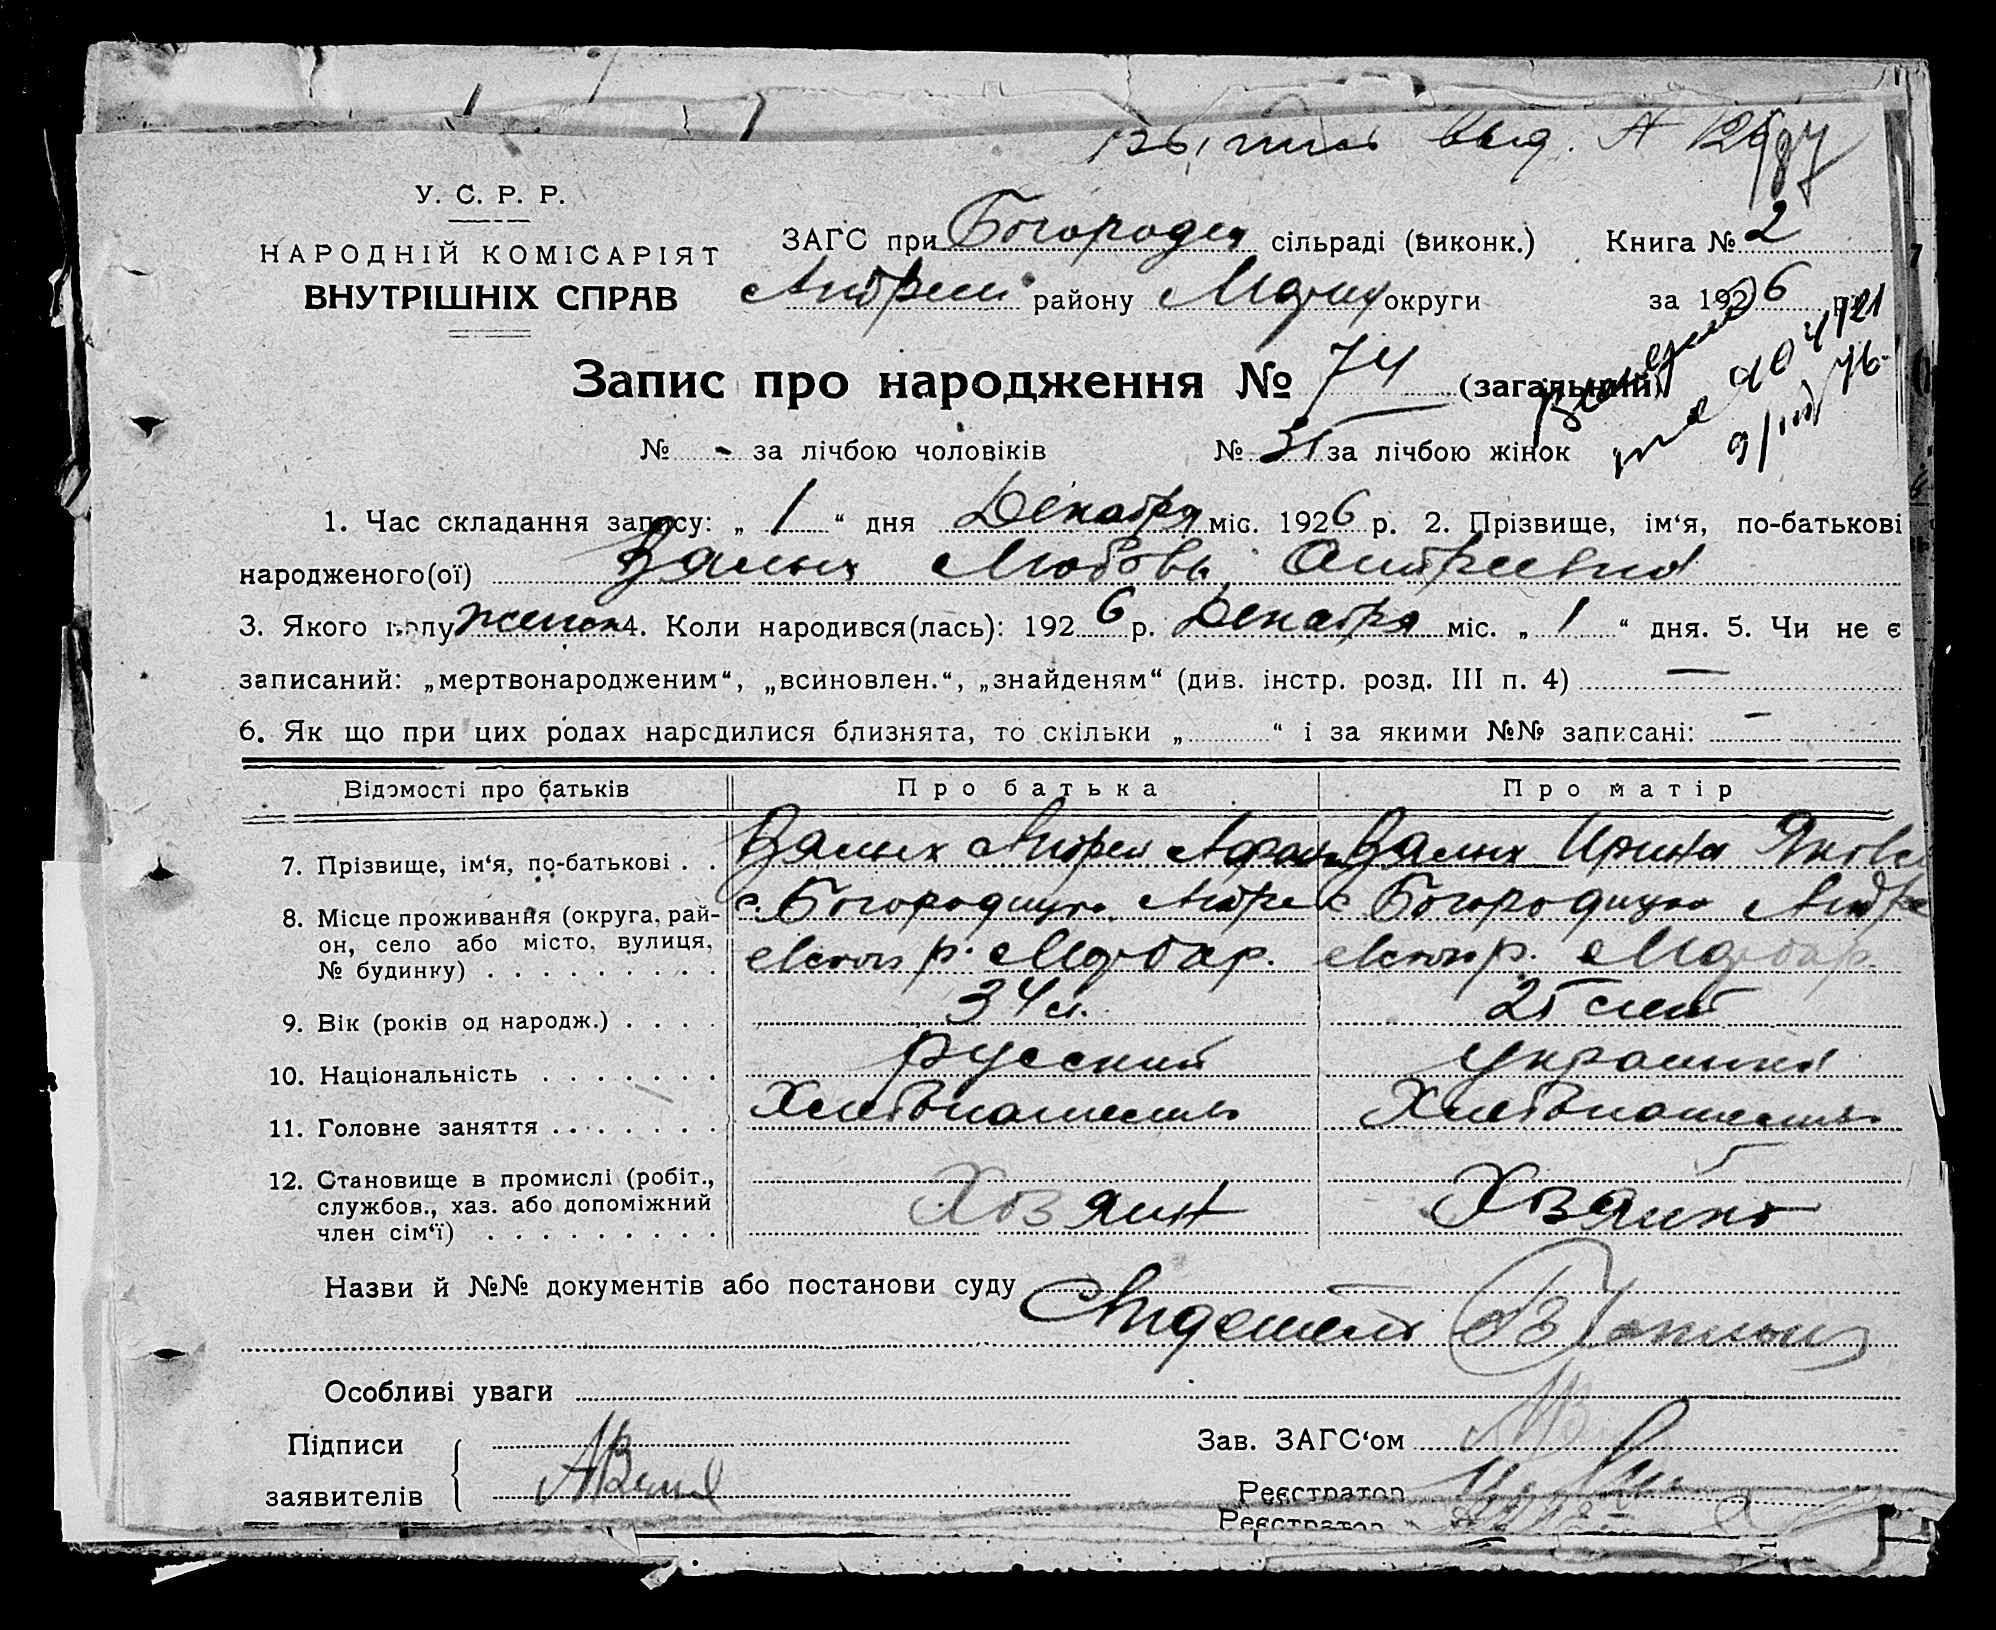 У. С. Р. Р.
НАРОДНІЙ КОМІСАРІЯТ
ВНУТРІШНІХ СПРАВ
ЗАГС при Богородиц сільраді (виконк.) Книга № 2
Андреев району округи за 1926 р.
Запис про народження № 74 (загальний)
№ - за лічбою чоловіків № за лічбою жінок
1. Час складання запису: „ 1 “ дня Декабря міс. 1926 р. 2. Прізвище, ім‘я, по-батькові
народженого(ої) Вялых Любовь Андреевна
3. Якого полу женск 4. Коли народився(лась): 1926 р. Декабря міс. „ 1 “ дня. 5. Чи не є
записаний: „мертвонародженим“, „всиновлен.“, „знайденям“ (див. інстр. розд. III п. 4) —
6. Як що при цих родах народилися близнята, то скільки „ “ і за якими №№ записані: —
Відомості про батьків Про батька Про матір
7. Прізвище, ім‘я, по-батькові . . Вялых Андрей Афан Вялых Ирина Яковл
8. Місце проживання (округа, рай-
он, село або місто, вулиця,
№ будинку) . . . . . . . . .
с. Богородицко Андре
евского р.
с. Богородицко Андре
евского р.
9. Вік (років од народж.) . . . . 34 л. 25 лет
10. Національність . . . . . . . русский украинка
11. Головне заняття . . . . . . . Хлебопашець Хлебопашець
12. Становище в промислі (робіт.,
службов., хаз. або допоміжний
член сім‘ї) . . . . . . . . .
Хозяин Хозяйка
Назви й №№ документів або постанови суду
Особливі уваги
Підписи
заявителів
Зав. ЗАГС‘ом
Реєстратор
Реєстратор